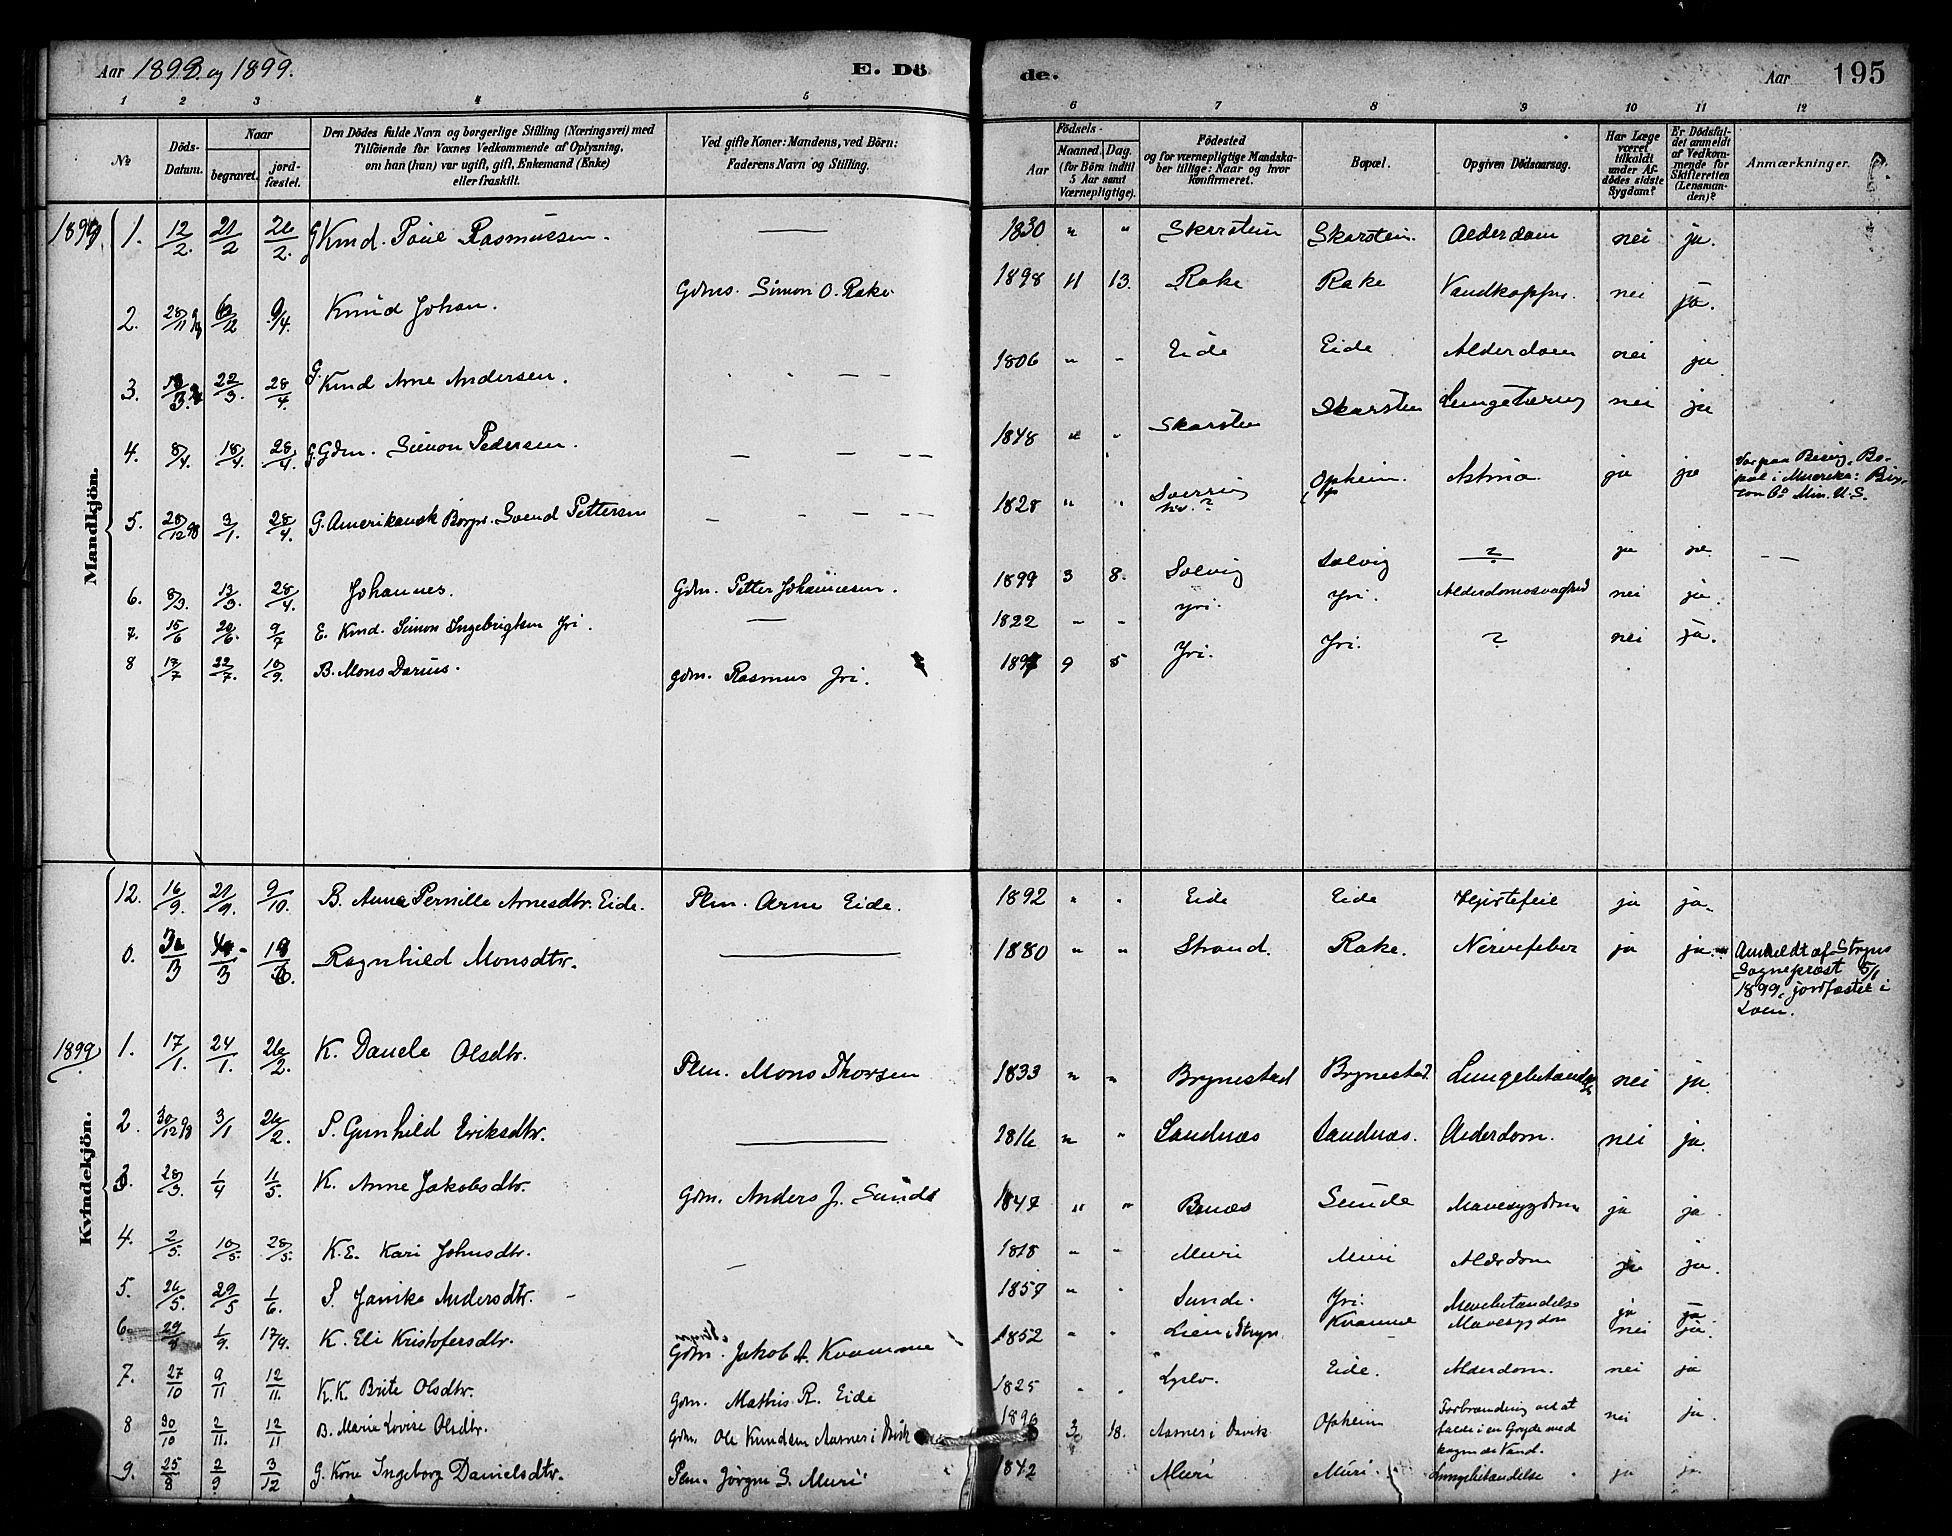 Aar 1898 og 1899.
E. Dö
de.
Aar 195
1 2 3 4 5 6 7 8 9 10 11 12
No
Döds-Datum.
Naar
begravet.
jord-fæstet.
Den Dödes fulde Navn og borgerlige Stilling (Næringsvei) med
Tilföiende for Voxnes Vedkommende af Oplysning,
om han (hun) var ugift, gift, Enkemand (Enke)
eller fraskilt.
Ved gifte Koner: Mandens, ved Börn:
Faderens Navn og Stilling.
Födsels-
Aar
Maaned. Dag.
(for Börn indtil
5 Aar samt
Værnepligtige).
Födested
og for værnepligtige Mandska-
ber tillige: Naar og hvor
Konfirmeret.
Bopæl.
Opgiven Dödsaarsag.
Har Læge
været
tilkaldt
under Af-
dödes sidste
Sygdom?
Er Dödsfal-
det anmeldt
af Vedkom-
mende for
Skifteretten
(Lensman-
den)?
Anmærkninger.
Mandkjön.
1899 1. 12/2. 21/2 26/2. G Kmd. Poul Rasmussen. — 1830 " " Skarstein Skarstein. Alderdom nei ja.
2. 28/11 98 /12 9/4. Knud Johan. Gdms. Simon O. Rake 1898 11 13. Rake Rake Vandkopper. nei ja.
3. /3. 22/3. 28/4. G. Kmd Arne Andersen. — — 1806 " " Eide Eide Alderdom nei ja
4. 8/4. 18/4. 28/4. G. Gdm. Simon Pedersen. — — — 1848 " " Skarsten Skarsten Lungetæring nei ja
5. 28/12 98 3/1. 28/4. G. Amerikansk Borger. Svend Pettersen — — — 1828 " " ? Opheim. Astma ja ja Var paa Besøg. Bo-
pæl i Amerika: Min. U.S.
6. 8/3. 13/3. 28/4. Johannes. Gdm. Petter Johannesen. 1899 3 8. Solvig Solvig ? ja ja —
7. 15/6 20/6. 9/7 E. Kmd. Simon Ingebrigtsen Yri. — 1822 " " Yri. Yri. Alderdomssvaghed nei ja.
8 13/7 22/7. 10/9. B. Mons Darius. gdm. Rasmus Yri. 189 9 5 Yri. Yri. ? nei ja.
Kvindekjön.
12. 16/9. 21/9. 9/10. B. Anna Pernille Arnesdtr. Eide. Plm. Arne Eide. 1892 " " Eide Eide Hjertefeil ja ja.
0. /3 /3 Ragnhild Monsdtr. — 1880 " " Strand. Rake. Nervefeber ja ja. Anmeldt af Stryns
Sogneprest 5/1
1899, jordfæstet i
Loen.
1899 1. 17/1. 24/1. 26/2. K. Danele Olsdtr. Plm. Mons Thorsen 1833 " " Brynestad Brynestad. Lungebetændelse nei ja.
2. 30/12 98 3/1 26/2. S. Gunhild Eriksdtr. — 1816 " " Sandnæs Sandnæs. Alderdom. nei ja.
3. 28/3. 1/4 11/5. K. Anne Jakobsdtr. Gdm. Anders J. Sunde 1847 " " Bonæs Sunde Mavesygdom ja ja.
4. 2/5. 10/5. 28/5. K.E. Kari Johnsdtr. — 1818 " " Muri Muri Alderdom ja ja.
5. 26/5. 29/5 1/6. S. Janike Andersdtr. — 1857 " " Sunde. Yri. Mavebetændelse ja ja
6. 29/8 1/9. 17/9. K. Eli Kristofersdtr. Stryn Gdm. Jakob A. Kvamme 1852 " " Lien i Stryn Kvamme Mavesygdom nei ja.
7. 27/10 9/11 12/11. K.K. Brite Olsdtr. Gdm. Mathis R. Eide 1825 " " Eide. Alderdom. nei ja
8 30/10 2/11. 12/11 B. Marie Lovise Olsdtr. Gdm. Ole Knudsen Aarnes i Davik 1896 3 18. Aarnes i Davik Opheim Forbrænding ved at
falde i en Gryde med
kogende Vand. nei ja.
9. 25/8 2/9 3/12 G. Kone Ingeborg Danielsdtr. Plm. Jörgen S. Muri 1842 Muri Muri. Lungebetændelse ja ja